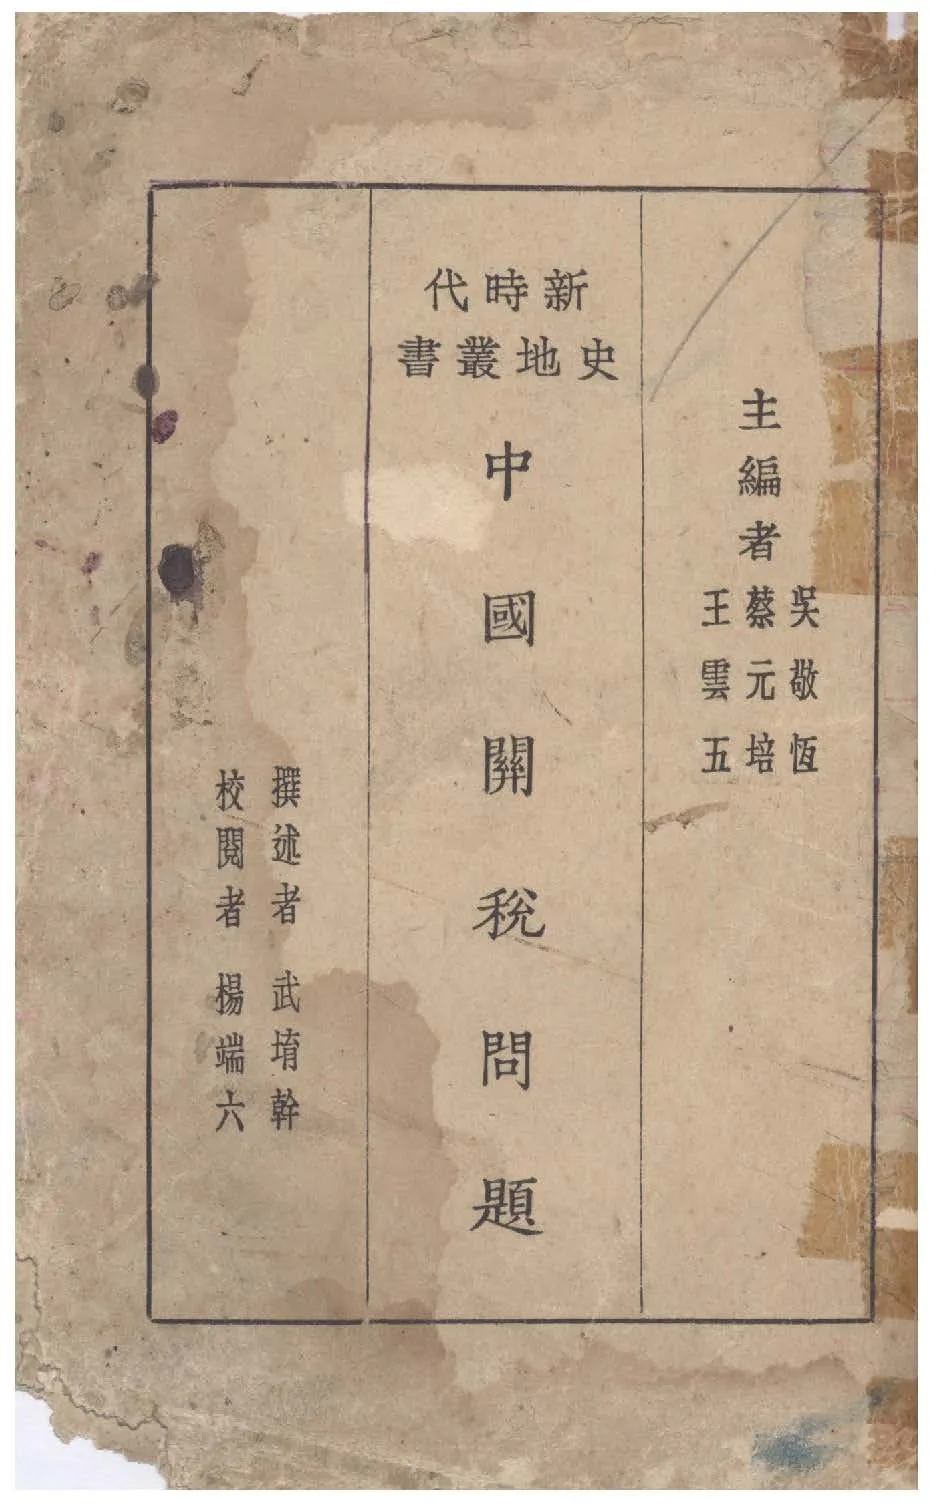 主編者
吳敬恆
蔡元培
王雲五
新時代
史地叢書
中國關稅問題
撰述者 武堉幹
校閱者 楊端六